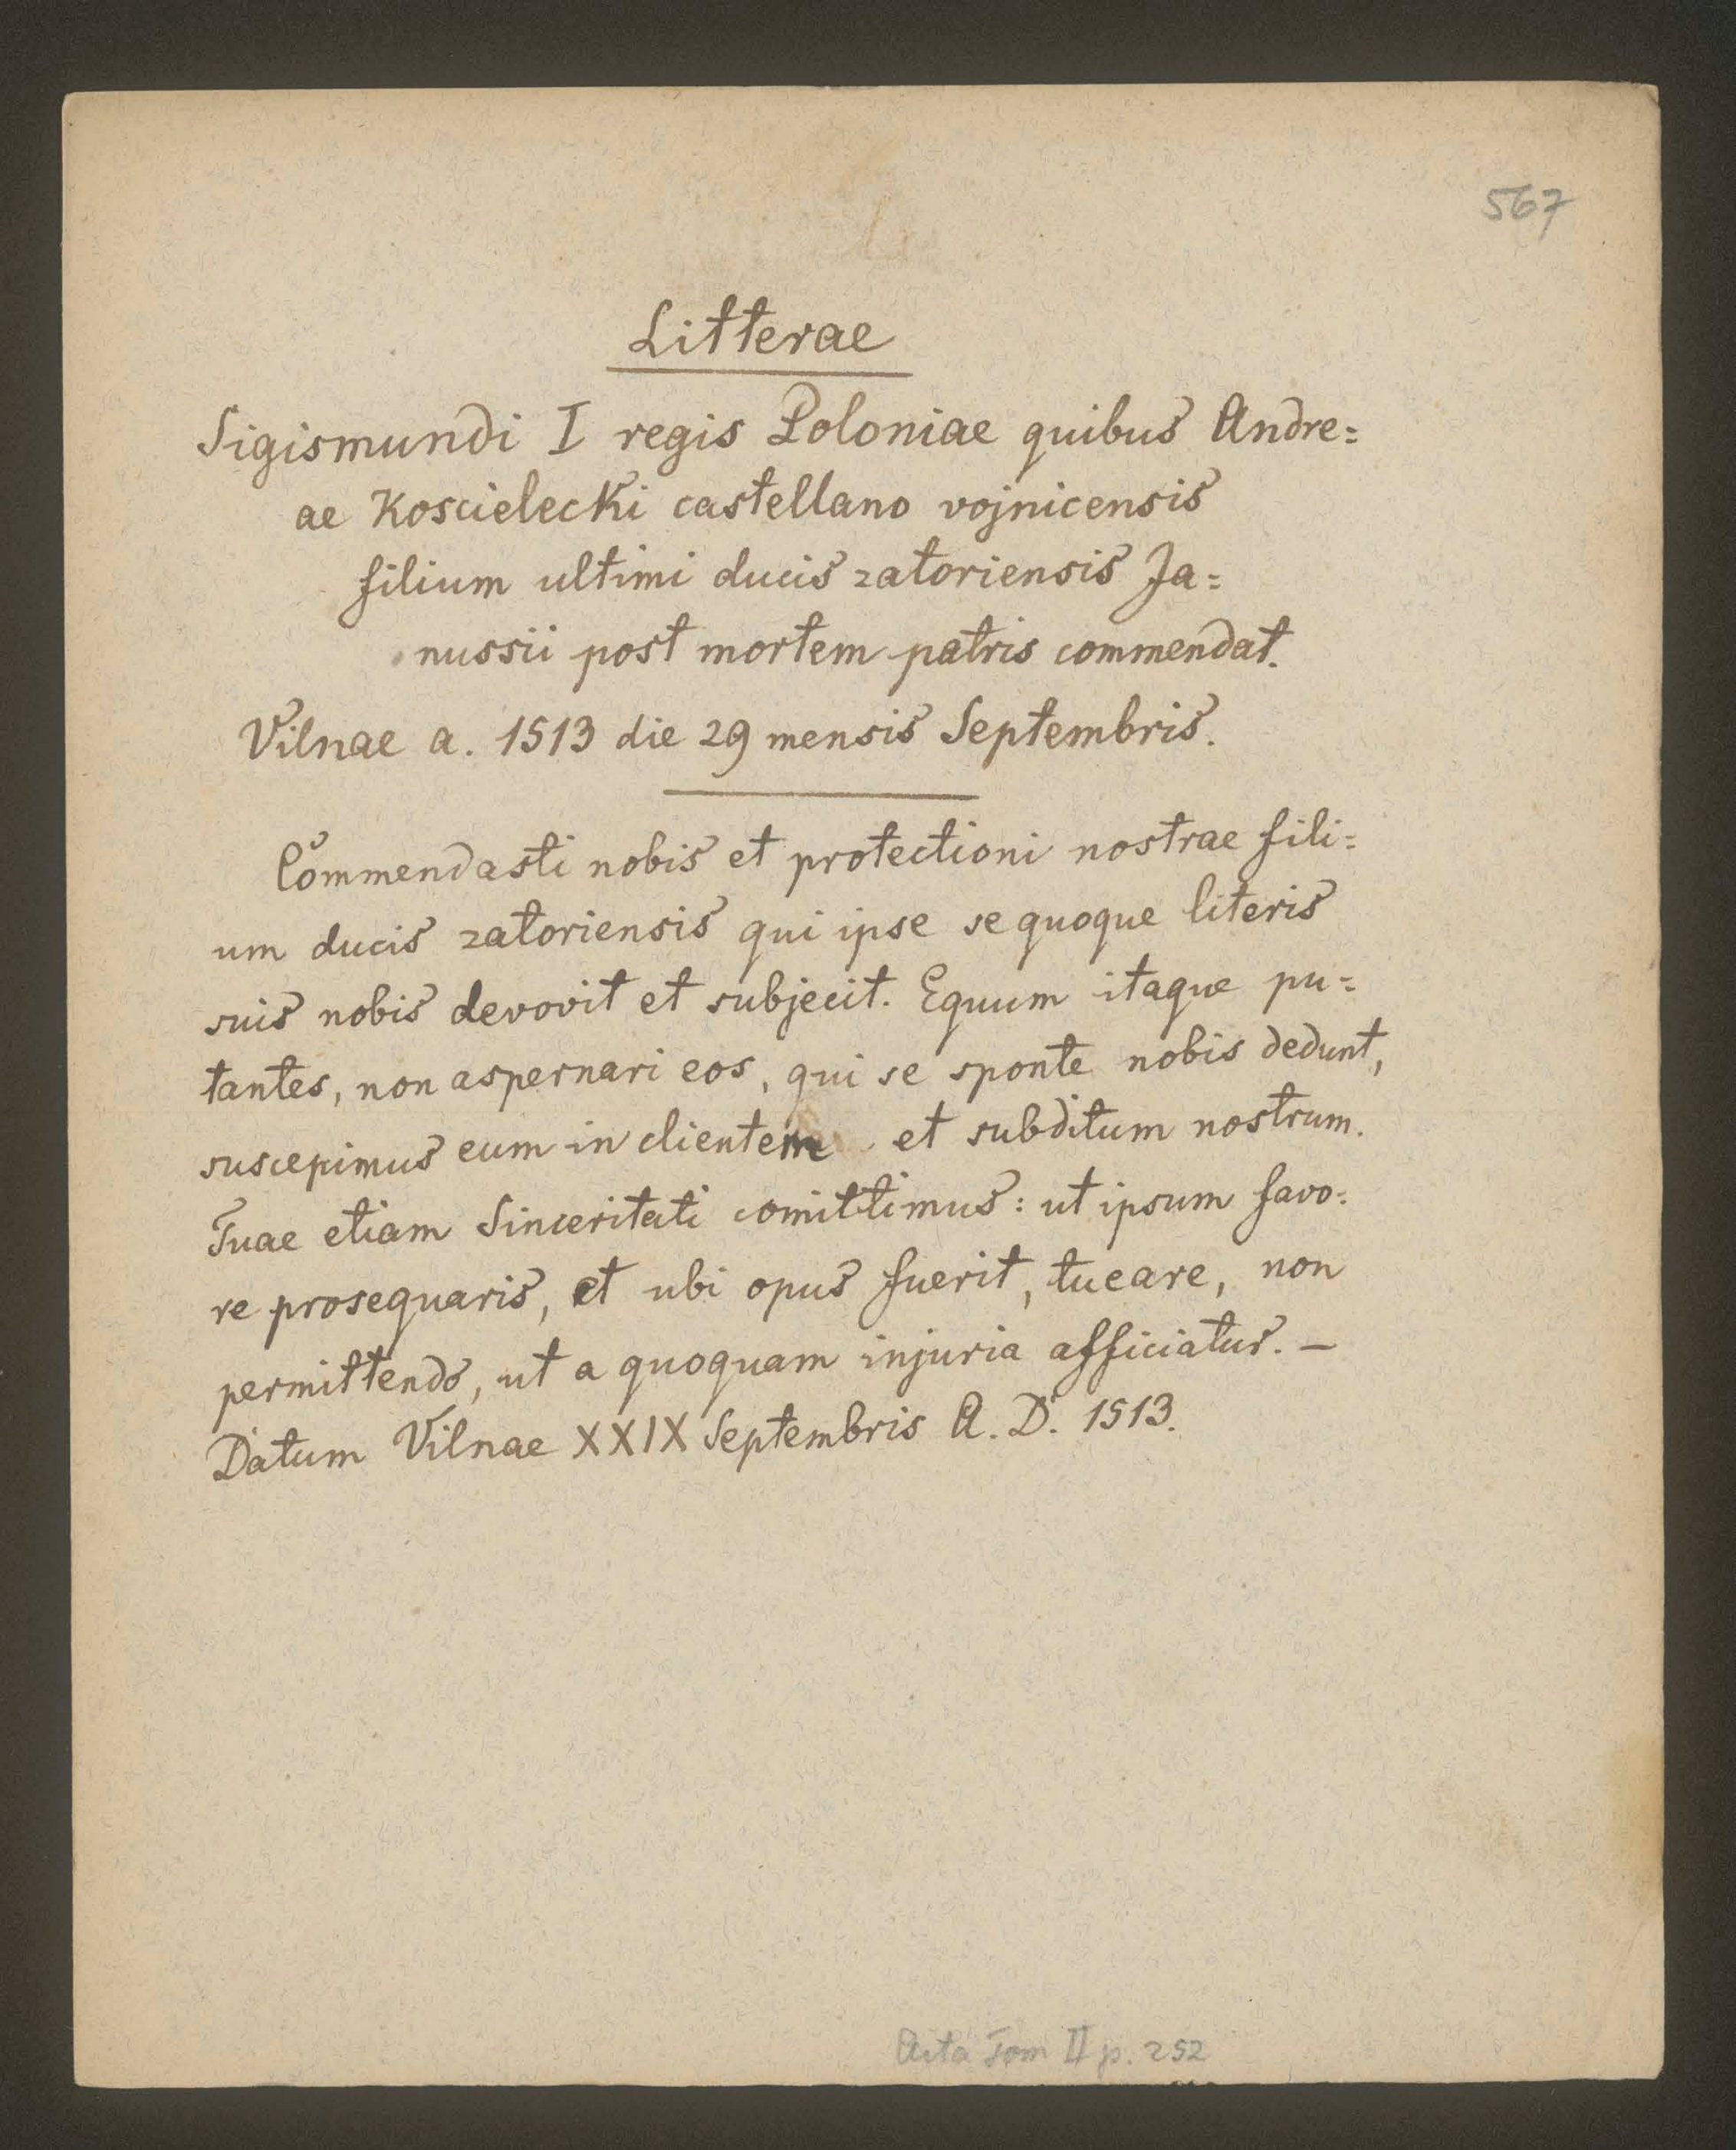 567
Litterae
Sigismundi I regis Poloniae quibus Andre=
ae Koscielecki castellano vojnicensis
filium ultimi ducis zatoriensis Ja=
nussii post mortem patris commendat.
Vilnae a. 1513 die 29 mensis Septembris.
Commendasti nobis et protectioni nostrae fili=
um ducis zatoriensis qui ipse se quoque literis
suis nobis devovit et subjecit. Equum itaque pu=
tantes, non aspernari eos, qui se sponte nobis dedunt,
suscepimus eum in clientem et subditum nostrum.
Tuae etiam Sinceritati comittimus: ut ipsum favo=
re prosequaris, et ubi opus fuerit, tueare, non
permittendo, ut a quoquam injuria afficiatur. –
Datum Vilnae XXIX Septembris A. D. 1513.
Acta Tom II p. 252